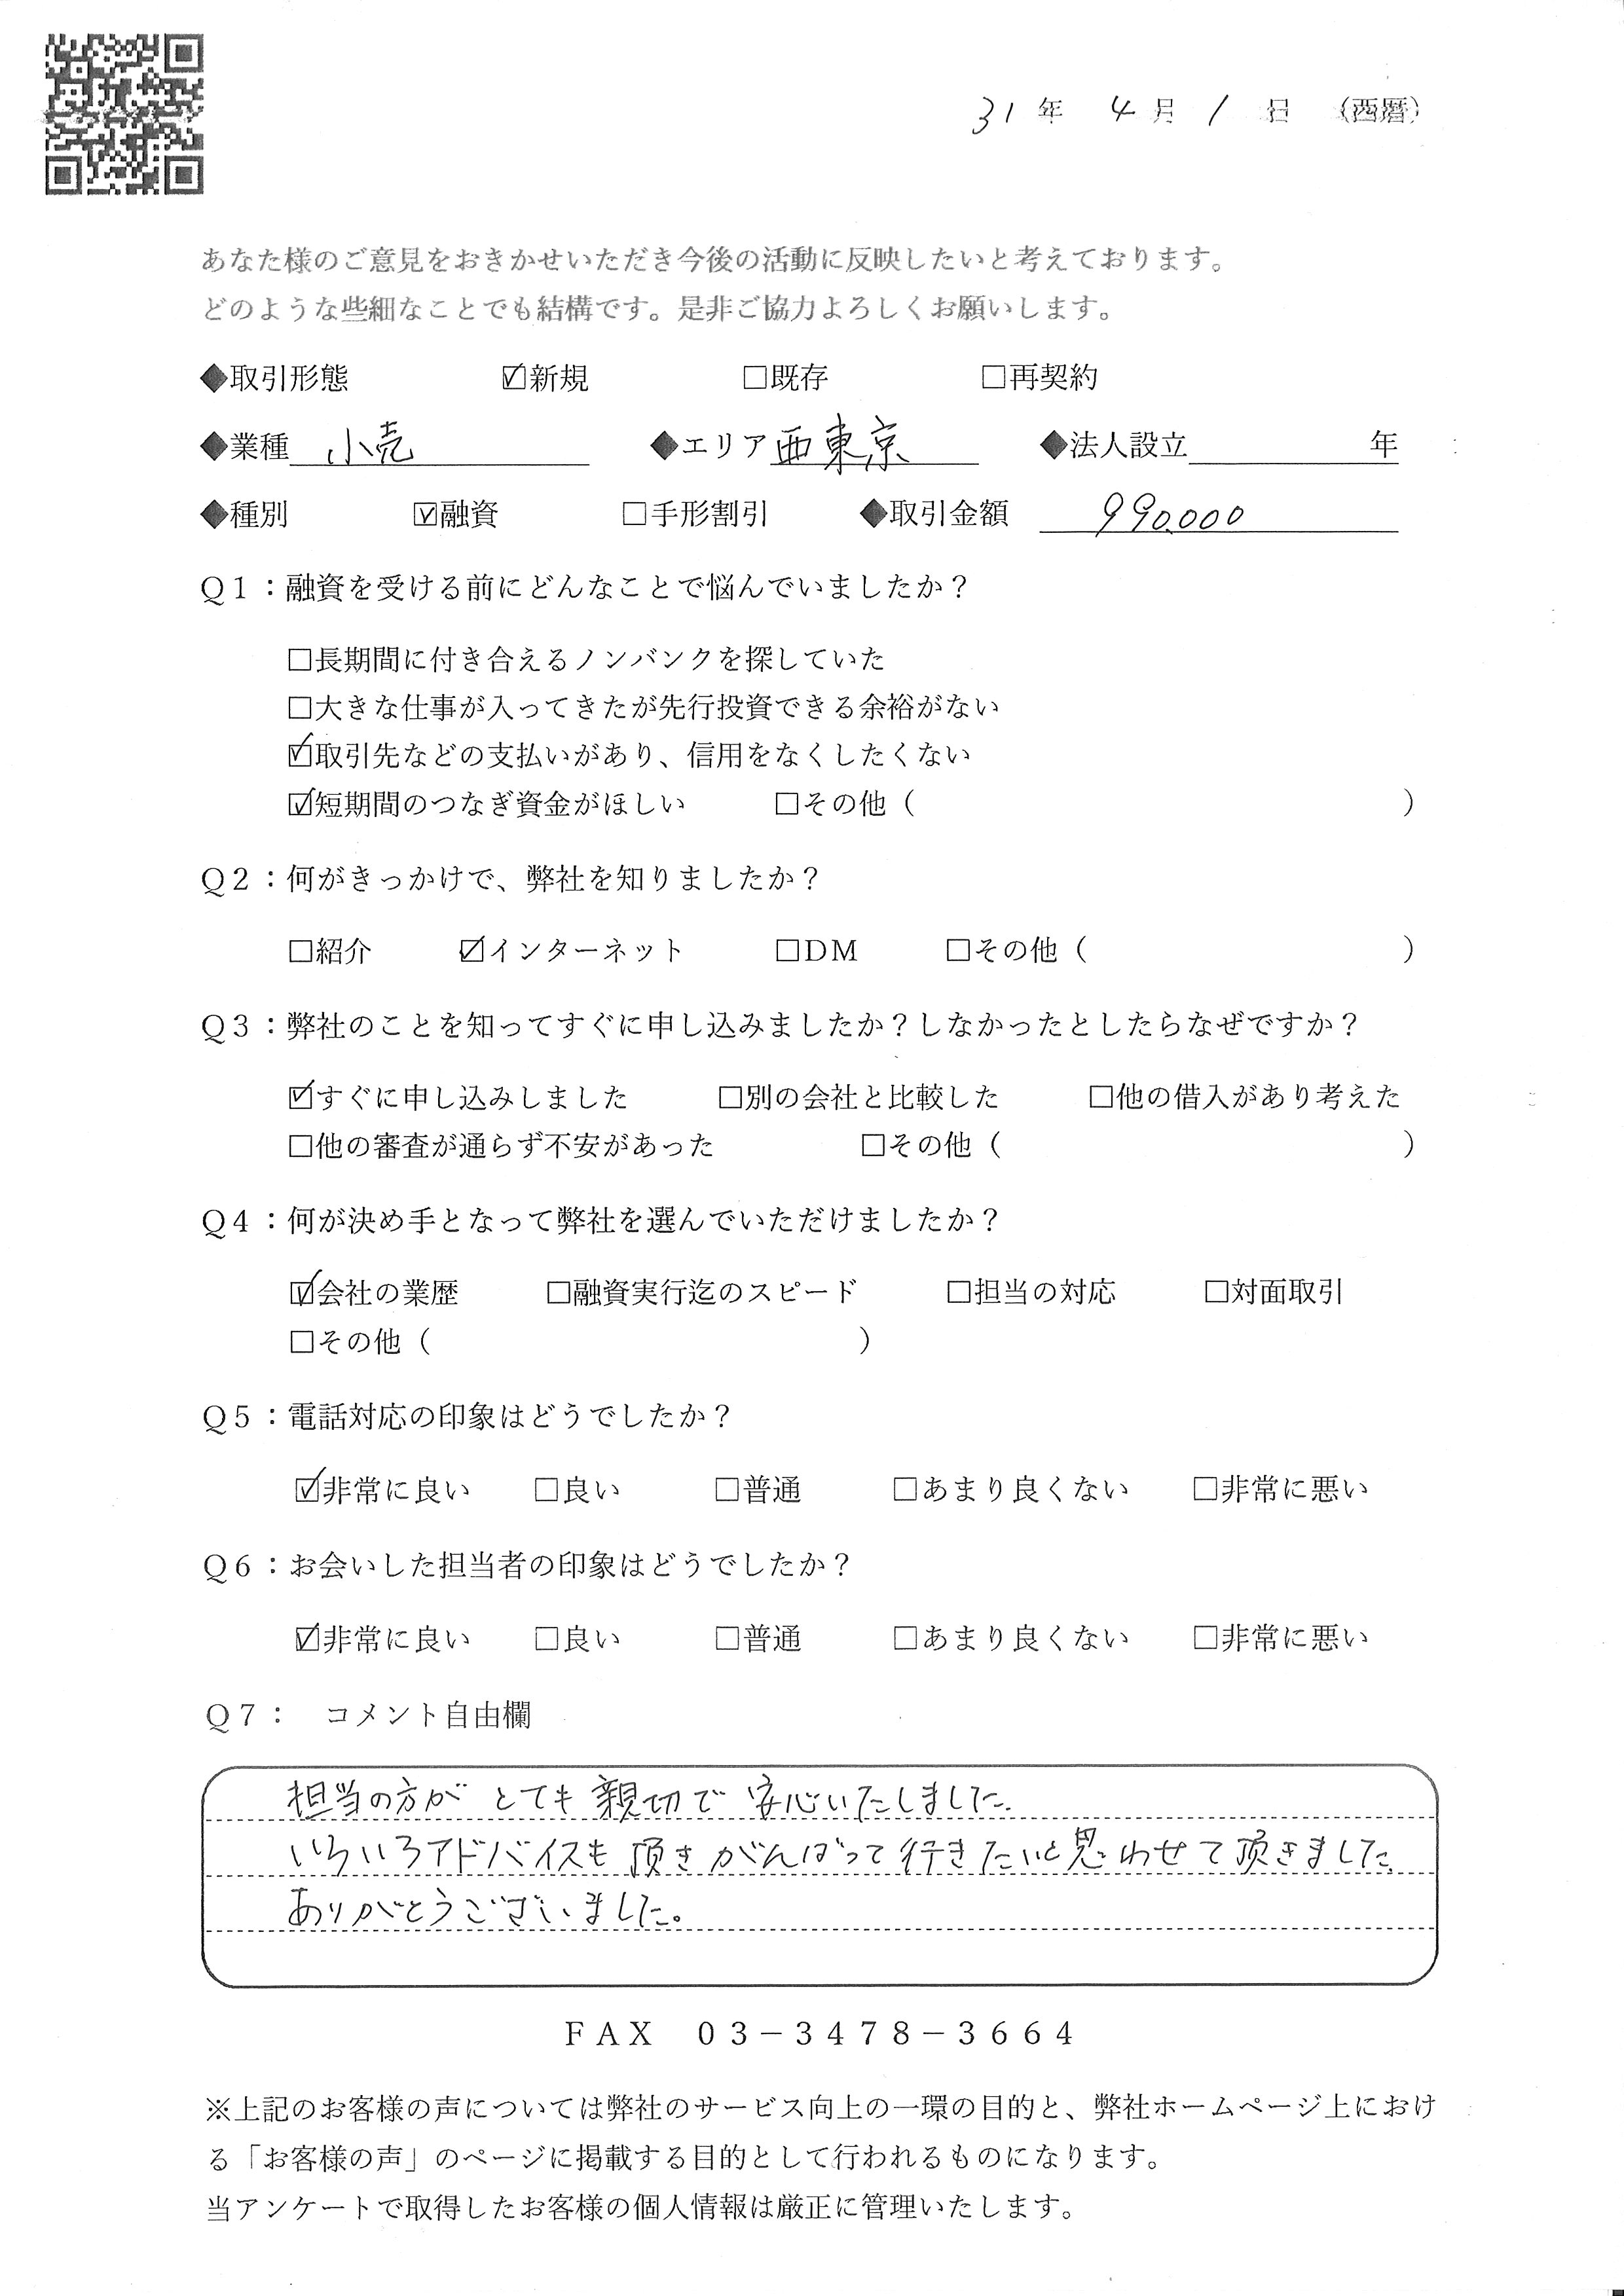 31年 4月 1日 （西暦）
あなた様のご意見をおきかせいただき今後の活動に反映したいと考えております。
どのような些細なことでも結構です。是非ご協力よろしくお願いします。
◆取引形態 ☑新規 □既存 □再契約
◆業種 小売 ◆エリア 西東京 ◆法人設立 年
◆種別 ☑融資 □手形割引 ◆取引金額 990,000
Ｑ１：融資を受ける前にどんなことで悩んでいましたか？
□長期間に付き合えるノンバンクを探していた
□大きな仕事が入ってきたが先行投資できる余裕がない
☑取引先などの支払いがあり、信用をなくしたくない
☑短期間のつなぎ資金がほしい □その他（ ）
Ｑ２：何がきっかけで、弊社を知りましたか？
□紹介 ☑インターネット □ＤＭ □その他（ ）
Ｑ３：弊社のことを知ってすぐに申し込みましたか？しなかったとしたらなぜですか？
☑すぐに申し込みしました □別の会社と比較した □他の借入があり考えた
□他の審査が通らず不安があった □その他（ ）
Ｑ４：何が決め手となって弊社を選んでいただけましたか？
☑会社の業歴 □融資実行迄のスピード □担当の対応 □対面取引
□その他（ ）
Ｑ５：電話対応の印象はどうでしたか？
☑非常に良い □良い □普通 □あまり良くない □非常に悪い
Ｑ６：お会いした担当者の印象はどうでしたか？
☑非常に良い □良い □普通 □あまり良くない □非常に悪い
Ｑ７： コメント自由欄
担当の方が とても 親切で 安心いたしました.
いろいろアドバイスも 頂き がんばって行きたいと思わせて頂きました.
ありがとうございました。
ＦＡＸ ０３－３４７８－３６６４
※上記のお客様の声については弊社のサービス向上の一環の目的と、弊社ホームページ上におけ
る「お客様の声」のページに掲載する目的として行われるものになります。
当アンケートで取得したお客様の個人情報は厳正に管理いたします。